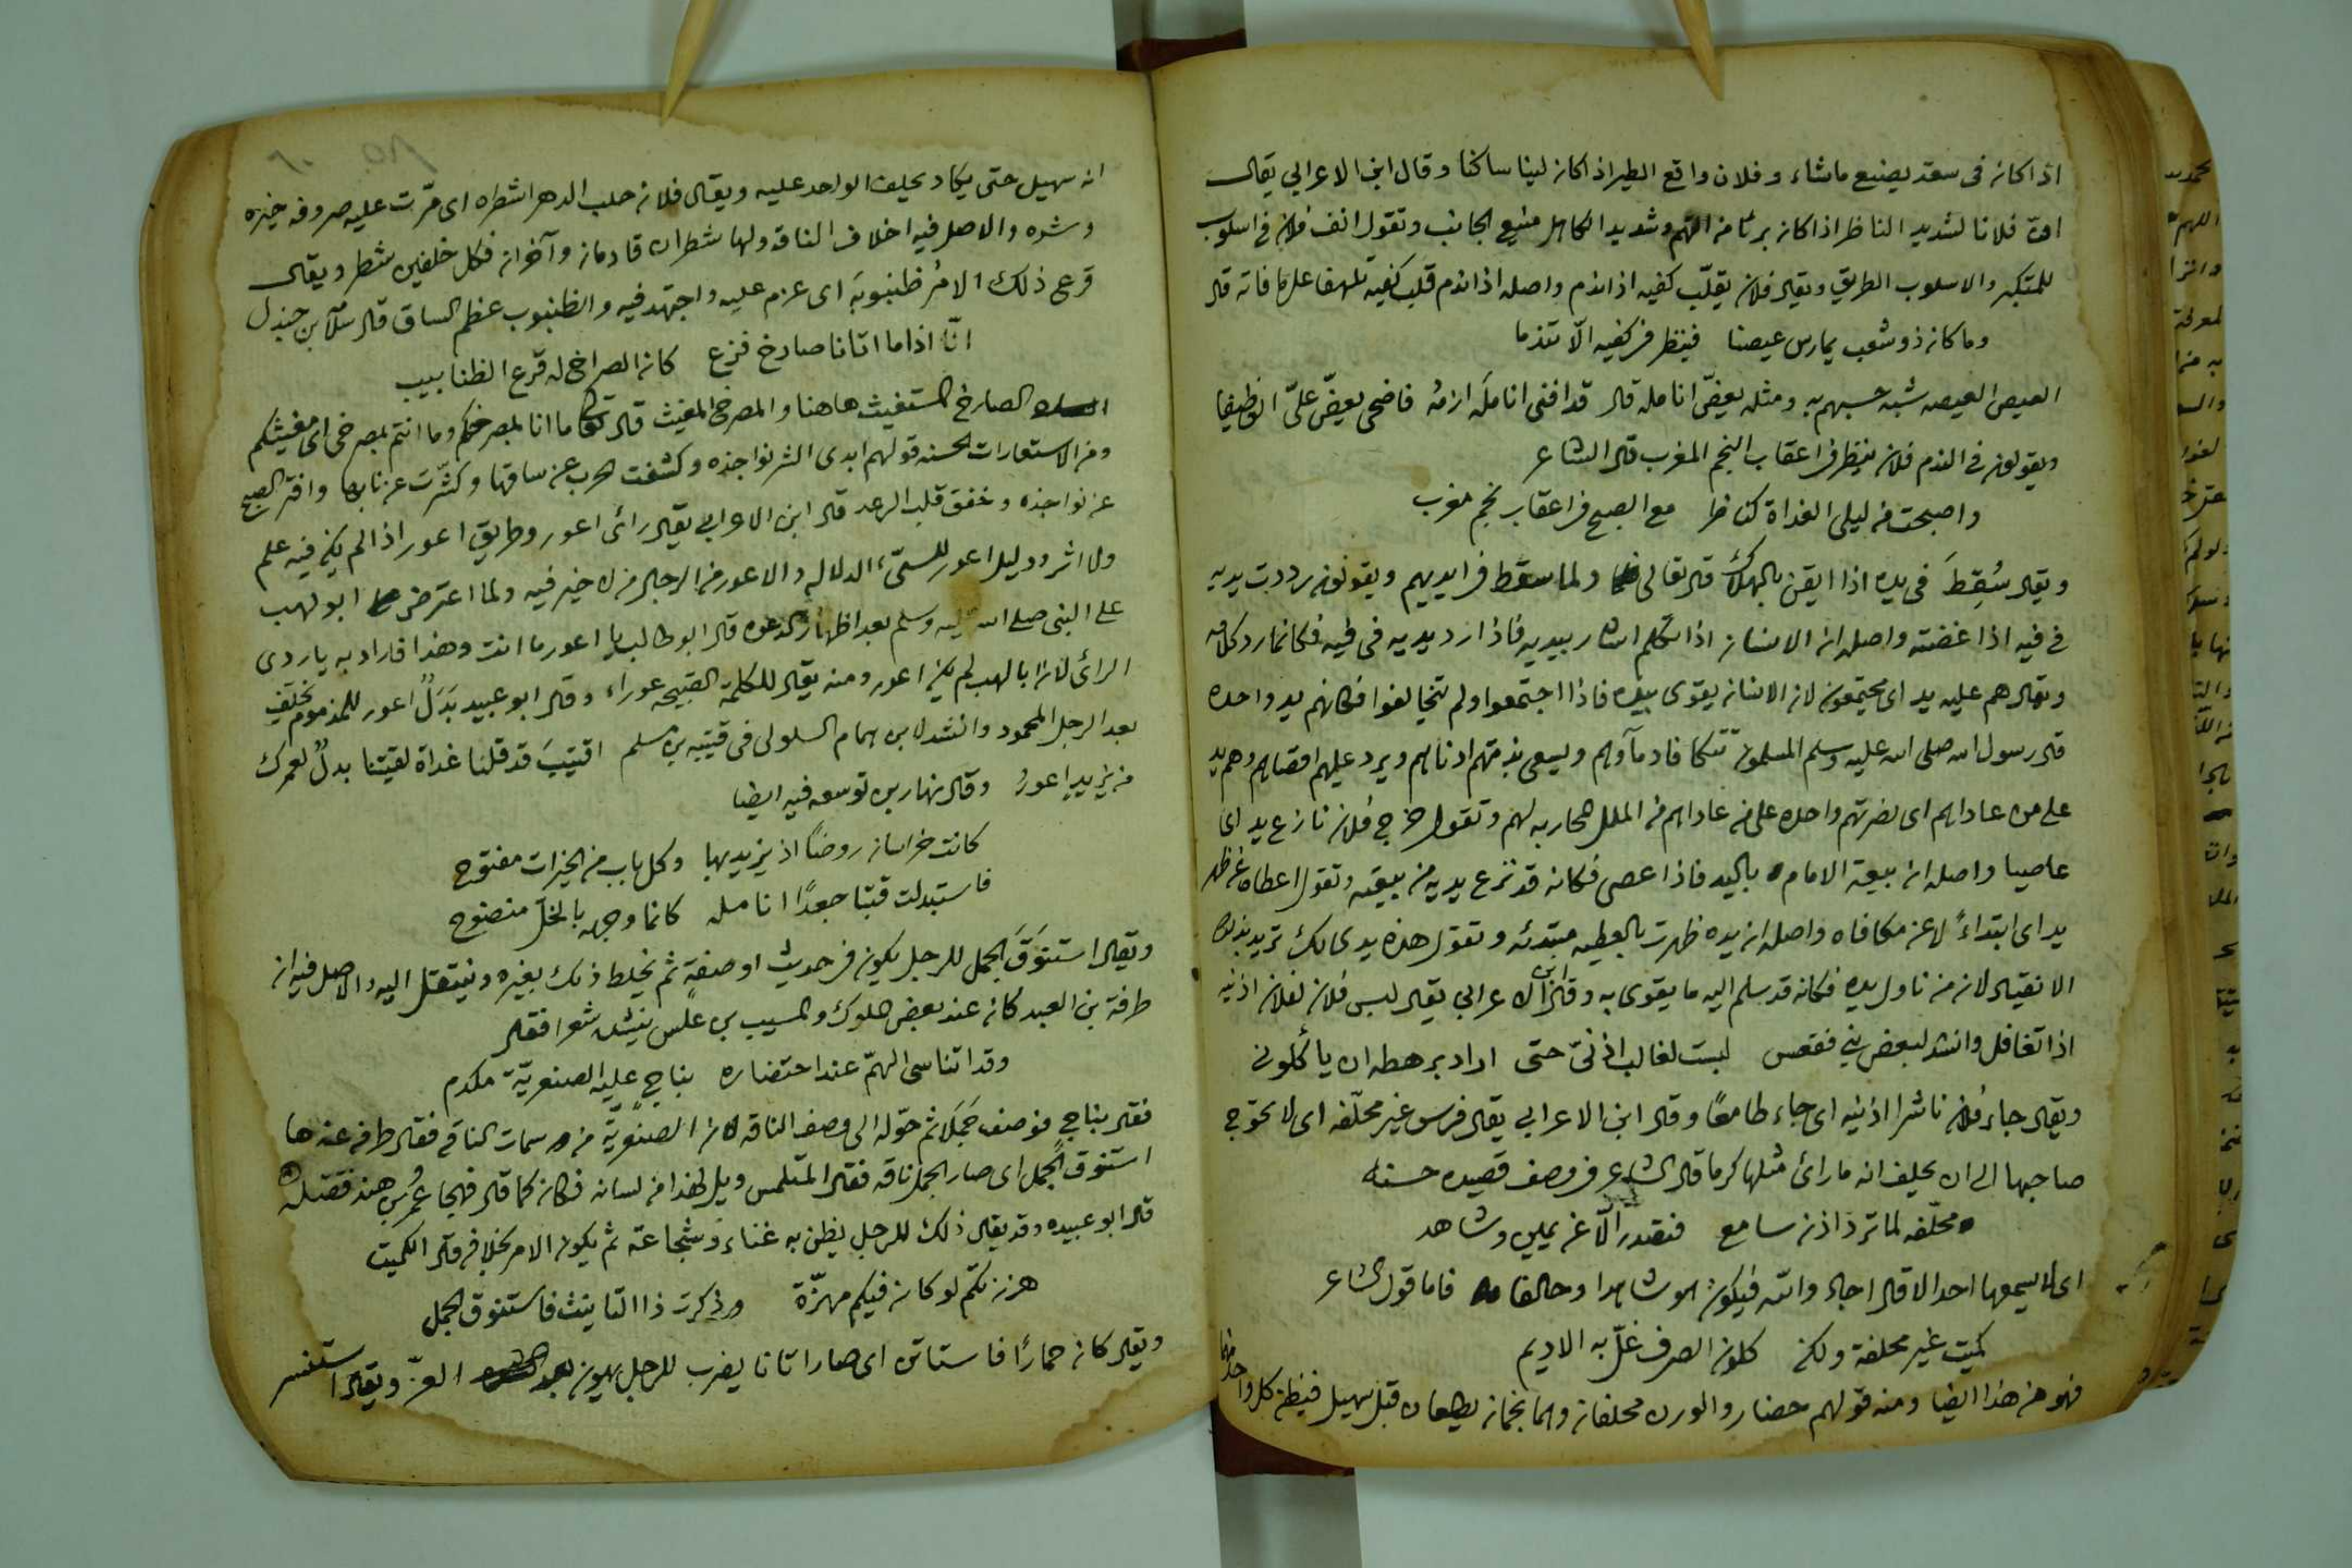 اذا كان فى سعة يصنع ماشاء وفلان واقع الطير اذا كان لينا ساكنا وقال ابن الاعرابي يقال
ان فلانا لشديد الناظر اذا كان بريّا من التهم وشديد الكاهل منيع الجانب وتقول انف فلان فى اسلوب
للمتكبر والاسلوب الطريق ويقال فلان يقلّب كفيه اذا ندم واصله اذا ندم قلب كفيه تلهفا على ما فاته قال
وما كان ذو شغب يمارس عيصنا فينظر فى كفيه الّا تندما
العيص العيصه شبه حسبهم به ومثله يعضّ انامله قال قد افنى انامله ازمه فاضحى يعضّ علىّ الوظيفا
ويقولون فى الندم فلان ينظر فى اعقاب النجم المغرب قال الشاعر
واصبحت من ليلى الغداة كناظر مع الصبح فى اعقاب نجم مغرب
ويقال سُقِطَ فى يده اذا ايقن بالهلاك قال تعالى ولما سقط فى ايديهم ويقولون رددت يديه
فى فيه اذا غضته واصله ان الانسان اذا تكلم اشار بيديه فاذا رد يديه فى فيه فكانما رد كلامه
ويقال هم عليه يد اى مجتمعون لان الانسان يقوى بيده فاذا اجتمعوا ولم يتخالفوا فكانهم يد واحده
قال رسول الله صلى الله عليه وسلم المسلمون تتكافا دمآوهم ويسعى بذمتهم ادناهم ويرد عليهم اقصاهم وهم يد
على من عاداهم اى نصرتهم واحده على من عاداهم من الملل المحاربه لهم وتقول خرج فلان نازع يد اى
عاصيا واصله ان بيعة الامام باليد فاذا عصى فكانه قد نزع يديه من بيعته وتقول اعطاه عن ظهر
يد اى ابتداءً لا عن مكافاه واصله ان يده ظهرت بالعطيه مبتدئه وتقول هذه يدى لك تريد بذلك
الانقياد لان من ناول يده فكانه قد سلم اليه ما يقوى به وقال ابن الاعرابي يقال لبس فلان لفلان اذنيه
اذا تغافل وانشد لبعض بني فقعس لبست لغالب اذنىّ حتى اراد برهطه ان يأكلونى
ويقال جاء فلان ناشرا اذنيه اى جاء طامعًا وقال ابن الاعرابي يقال فرس غير محلّفه اى لا تحوّج
صاحبها الى ان يحلف انه ما رأى مثلها كرما قال الشاعر فى وصف قصيده حسنه
محلّفه لما ترد اذن سامع فتقدر الّا عن يمين وشاهد
اى لا يسمعها احد الا قال اجاد والله فيكون هو شاهدا وحالفا فاما قول الشاعر
كميت غير محلفة ولكن كلون الصرف علّ به الاديم
فهو من هذا ايضا ومنه قولهم حضار والوزن محلفان وهما نجمان يطلعان قبل سهيل فيظن كل واحد منهما
انه سهيل حتى يكاد يحلف الواحد عليه ويقال فلان حلب الدهر اشطره اى مرّت عليه صروفه خيره
وشره والاصل فيه اخلاف الناقة ولها شطران قادمان وآخران فكل خلفين شطر ويقال
قرع ذلك الامر ظنبوبَه اى عزم عليه واجتهد فيه والظنبوب عظم الساق قال سلامة بن جندل
انّا اذا ما اتانا صارخ فزع كان الصراخ له قرع الظنابيب
الصارخ المستغيث هاهنا والمصرخ المغيث قال تعالى ما انا بمصرخكم وما انتم بمصرخى اى مغيثكم
ومن الاستعارات الحسنه قولهم ابدى الشر نواجذه وكشفت الحرب عن ساقها وكشّرت عن نابها وافتر الصبح
عن نواجذه وخفق قلب الرعد قال ابن الاعرابي يقال رائ اعور وطريق اعور اذا لم يكن فيه علم
ولا اثر ودليل اعور للسيّء الدلاله والاعور من الرجال من لا خير فيه ولما اعترض ابو لهب
على النبى صلى الله عليه وسلم بعد اظهار الدعوه قال ابو طالب يا اعور ما انت وهذا فاراد به يا ردى
الرائ لان ابا لهب لم يكن اعور ومنه يقال للكلمة القبيحه عوراء وقال ابو عبيد بَدَلٌ اعور للمذموم يخلف
بعد الرجل المحمود وانشد لابن همام السلولى فى قتيبه بن مسلم اقتيبَ قد قلنا غداة لقيتنا بدلٌ لعمرك
من يزيد اعورُ وقال نهار بن توسعه فيه ايضا
كانت خراسان روضًا اذ يزيد بها وكل باب من الخيرات مفتوح
فاستبدلت قتبا جعدًا انامله كانما وجهه بالخلّ منضوح
ويقال استنوَقَ الجمل للرجل يكون فى حديث او صفة ثم يخلط ذلك بغيره وينتقل اليه والاصل فيه ان
طرفة بن العبد كان عند بعض الملوك والمسيب بن علس ينشد شعرا فقال
وقد اتناسى الهمّ عند احتضاره بناجٍ عليه الصنعريّة مكدم
فقال بناجٍ فوصف جَملا ثم حوّله الى وصف الناقه لان الصنعريّة من سمات الناقه فقال طرفه عندها
استنوق الجمل اى صار الجمل ناقه فقال المتلمس ويل لهذا من لسانه فكان كما قال فهجا عُمر بن هند فقتله
قال ابو عبيده وقد يقال ذلك للرجل يظن به غناء وشجاعة ثم يكون الامر بخلافه قال الكميت
هززتكم لو كان فيكم مهزّة وذكرت ذا التانيث فاستنوق الجمل
ويقال كان حمارًا فاستاتن اى صار اتانا يضرب للرجل يهون بعد العزّ ويقال استنسر